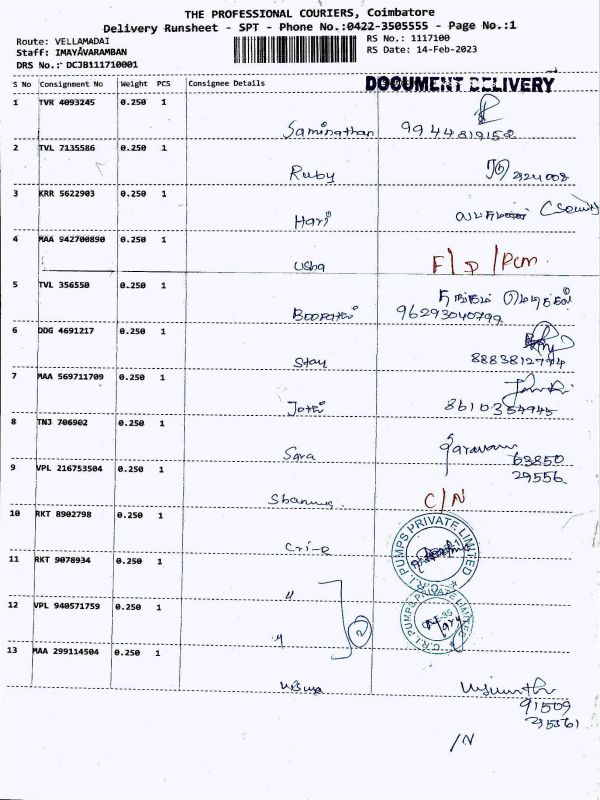 THE PROFESSIONAL COURIERS, Coimbatore
Delivery Runsheet - SPT - Phone No.:0422-3505555 - Page No.:1
Route: VELLAMADAI RS No.: 1117100
Staff: IMAYAVARAMBAN RS Date: 14-Feb-2023
DRS No.: DCJB111710001
DOCUMENT DELIVERY
S No Consignment No Weight PCS Consignee Details
1 TVR 4093245 0.250 1
Saminathan 9944819158
2 TVL 7135586 0.250 1
Ruby
3 KRR 5622903 0.250 1
Hari
4 MAA 942700890 0.250 1
Usha F/D/Pcm.
5 TVL 356550 0.250 1
96293040799
6 DDG 4691217 0.250 1
Stay 8883812774
7 MAA 569711709 0.250 1
Jothi 8610354945
8 TNJ 706902 0.250 1
Sara Saravana
63850
9 VPL 216753504 0.250 1
29556
C/N
10 RKT 8902798 0.250 1
C.R.I. PUMPS PRIVATE LIMITED
11 RKT 9078934 0.250 1
"
12 VPL 940571759 0.250 1
C.R.I. PUMPS PRIVATE LIMITED
" 2
13 MAA 299114504 0.250 1
91509
295361
/N